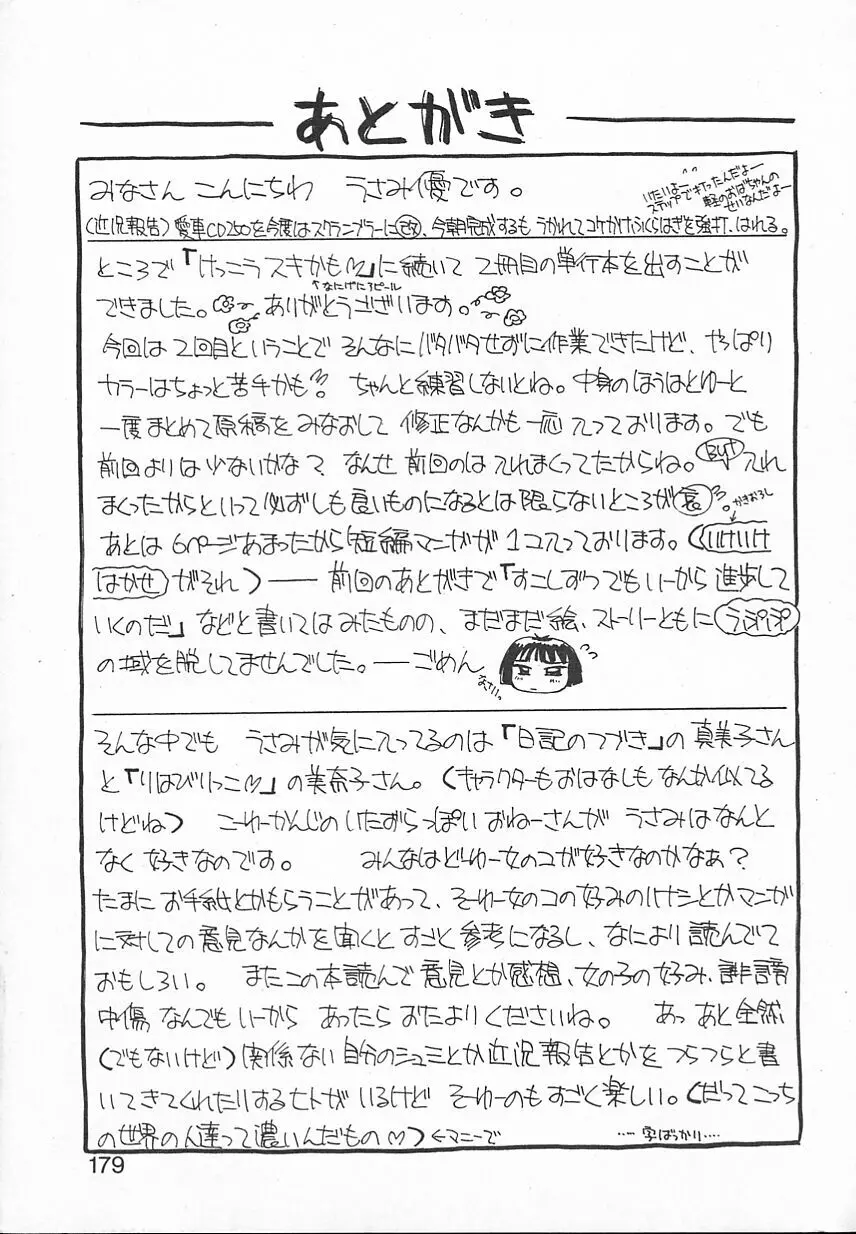 あとがき
みなさん こんにちわ うさみ優です。
いたいよー
ステップで打ったんだよー
軽のおばちゃんの
せいなんだよー
(近況報告)愛車CD250を今度はスクランブラーに改、今朝完成するも うかれてコケかけふくらはぎを強打、はれる。
ところで「けっこうスキかも♡」に続いて 2冊目の単行本を出すことが
↑なにげにアピール
できました。 ありがとうございます。
今回は2回目ということで そんなにバタバタせずに作業できたけど、やっぱり
カラーはちょっと苦手かも ちゃんと練習しないとね。中身のほうはとゆーと
一度まとめて原稿を みなおして 修正なんかも 一応 入っております。でも
前回よりは少ないかな? なんせ 前回のは 入れまくってたからね。But 入れ
まくったからといって必ずしも良いものになるとは 限らないところが 哀。
かきおろし
あとは 6ページあまったから 短編マンガが 1コ入っております。(いけいけ
はかせ がそれ)── 前回のあとがきで「すこしずつでもいーから 進歩して
いくのだ」などと書いてはみたものの、まだまだ絵、ストーリーともに うぷぷぷ
の域を脱してませんでした。──ごめん
なさい。
そんな中でも うさみが気に入ってるのは「日記のつづき」の 真美子さん
と「りはびりっこ♡」の美奈子さん。(キャラクターもおはなしも なんか似てる
けどね) こーゆーかんじの いたずらっぽい おねーさんが うさみはなんと
なく 好きなのです。 みんなは どーゆー女のコが好きなのかなぁ?
たまに お手紙とかもらうことがあって、そーゆー女のコの好みのハナシとか マンガ
に対しての意見なんかを聞くと すごと 参考になるし、なにより 読んでて
おもしろい。 またこの本読んで 意見とか感想、女の子の好み、誹謗
中傷 なんでも いーから あったら おたよりくださいね。 あっ あと全然
(でもないけど)関係ない 自分のシュミとか近況報告とかを つらつらと書
いてきてくれたりするヒトが いるけど そーゆーのも すごく楽しい。(だって こっち
の世界の人達って濃いんだもの♡)←マニーで
……字ばっかり‥‥
179